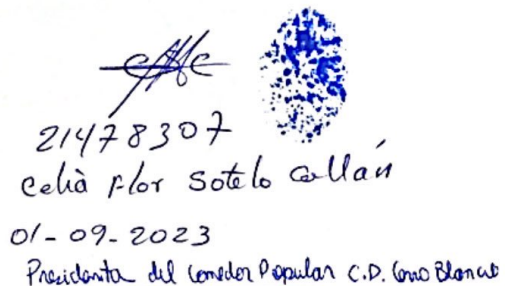 21478307
Celià Flor Sotelo Callán
01-09-2023
Presidenta del Comedor Popular C.D. Cono Blanco